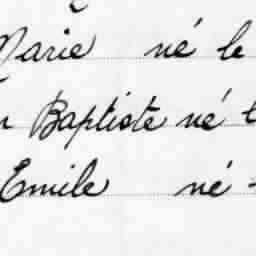 Marie né le
Baptiste né
Emile né